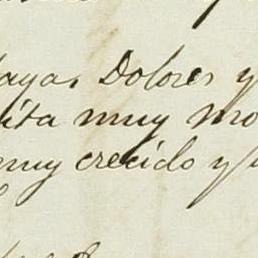 ayas Dolores y
ita muy mo
muy crecido y